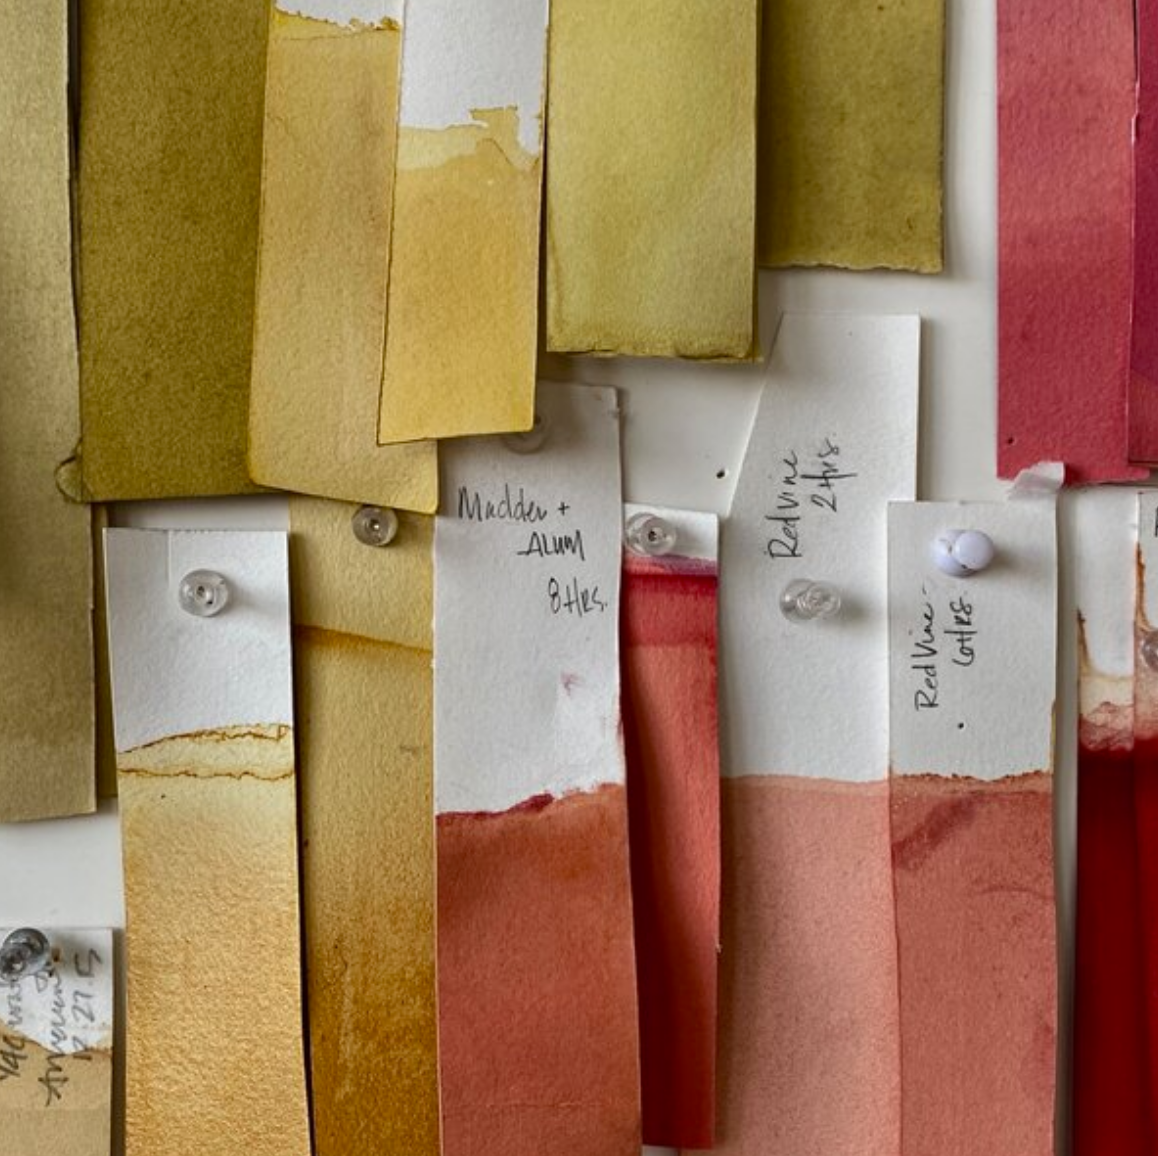 Madder +
ALUM
8 Hrs.
Red Vine
2 Hrs.
Red Vine -
6 Hrs
12.27.15